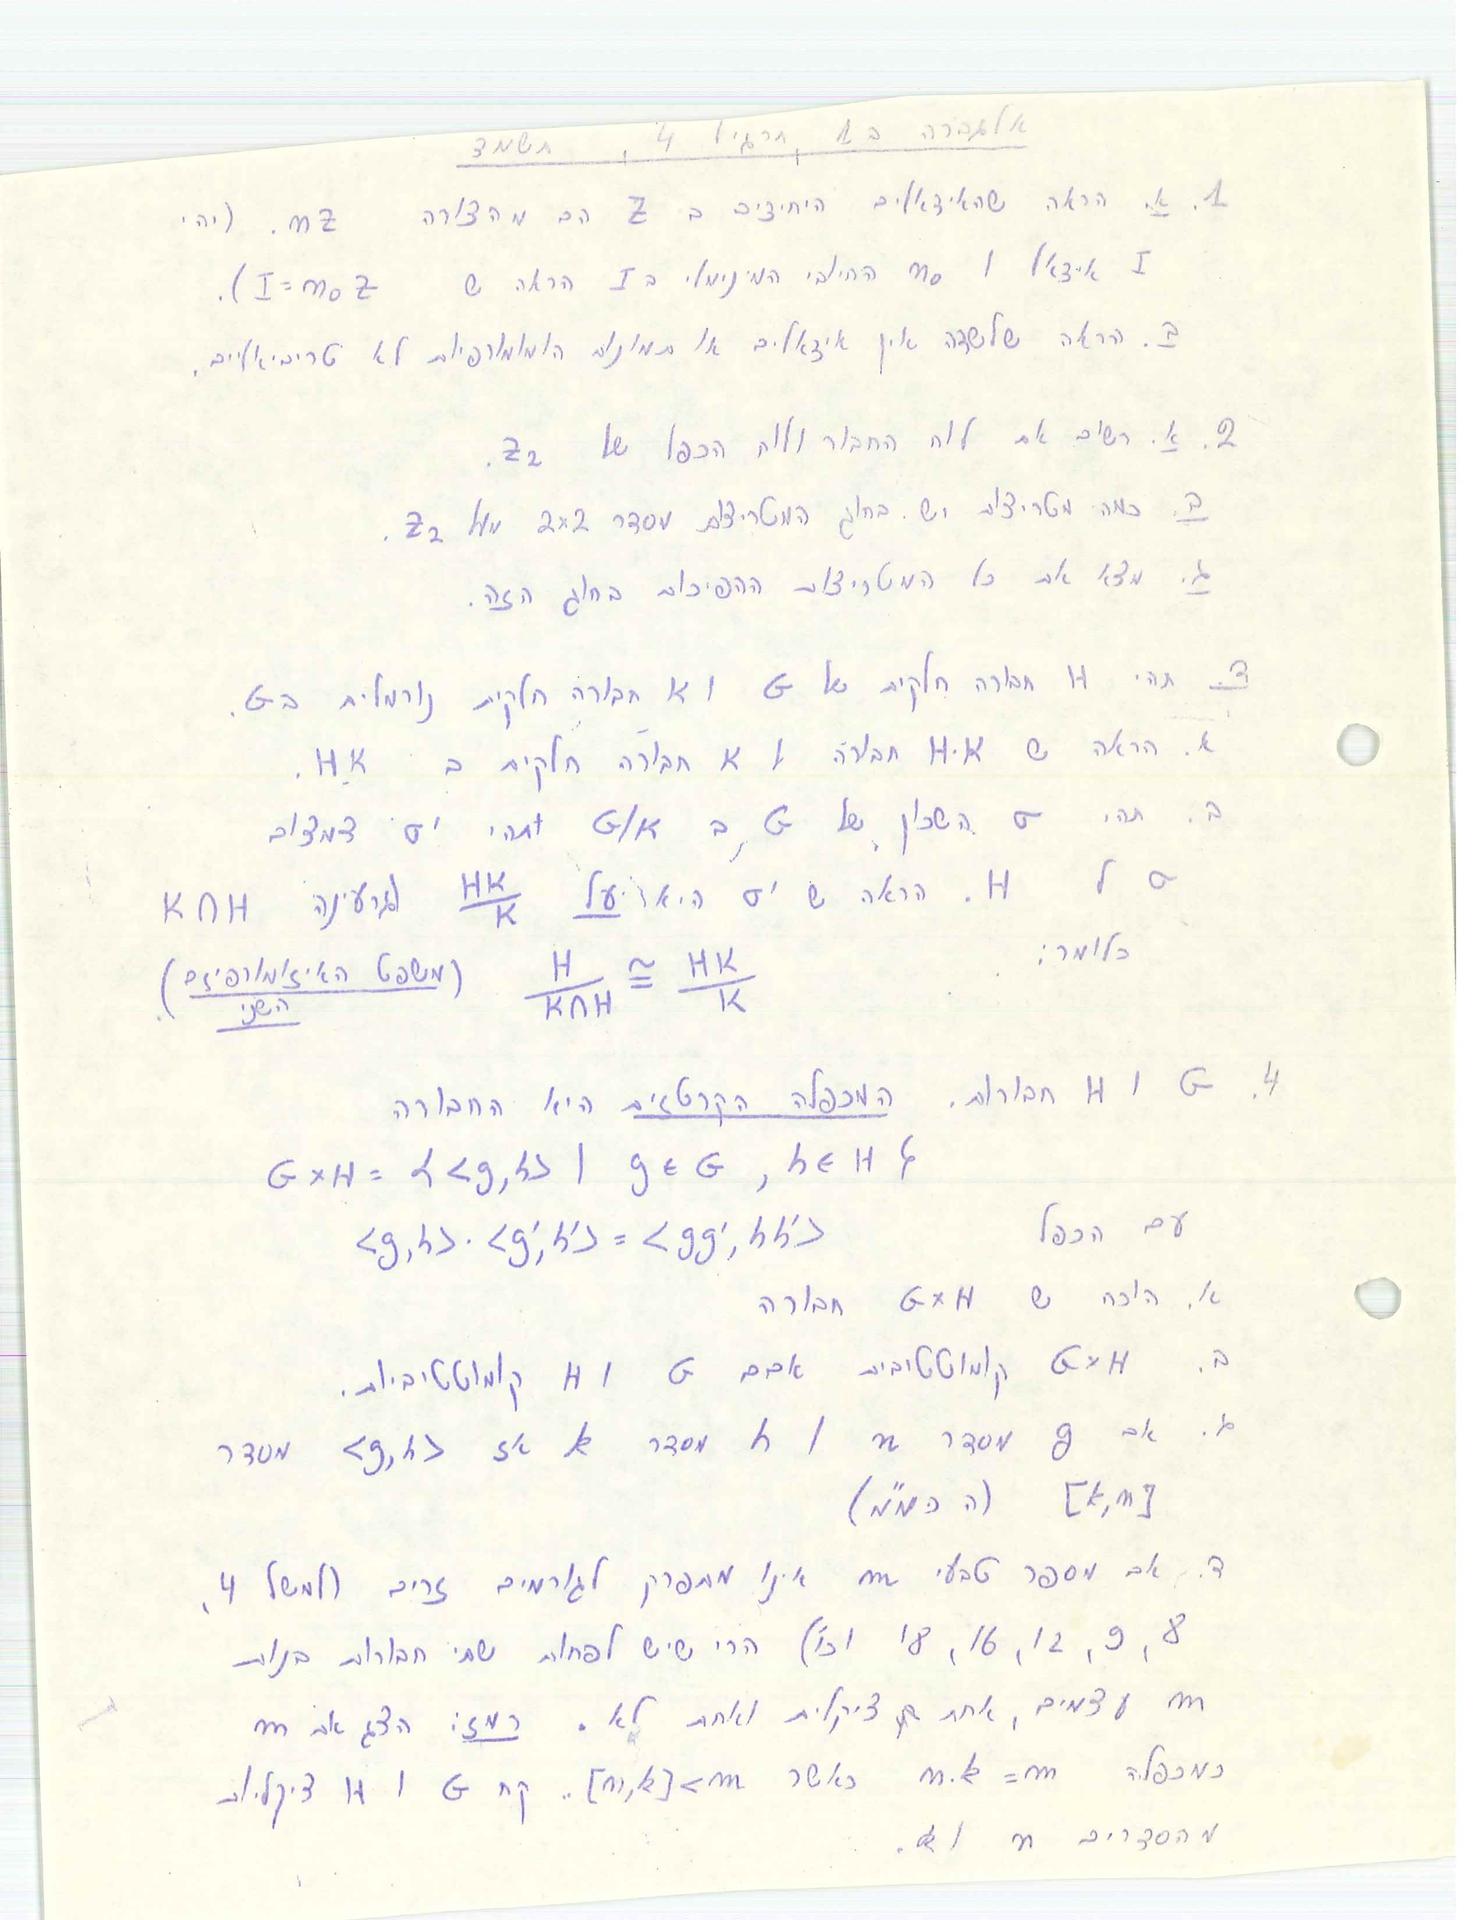 אלגברה ב1, תרגיל 4, תשמד
1. א. הראה שהאידאלים היחידים ב Z הם מהצורה mZ. (יהי
I אידאל ו m₀ החיובי המינימלי ב I הראה ש I=m₀Z).
ב. הראה שלשדה אין אידאלים או תמונות הומומורפיות לא טריביאליים.
2. א. רשום את לוח החבור ולוח הכפל של Z₂.
ב. כמה מטריצות יש בחוג המטריצות מסדר 2x2 מעל Z₂.
ג. מצא את כל המטריצות ההפיכות בחוג הזה.
3. תהי H חבורה חלקית של G ו K חבורה חלקית נורמלית ב G.
א. הראה ש H·K חבורה ו K חבורה חלקית ב HK.
ב. תהי σ השכון של G ב G/K ותהי σ' צמצום
σ ל H. הראה ש σ' היא על HK/K וגרעינה K∩H
כלומר: H/K∩H ≅ HK/K (משפט האיזומורפיזם
השני).
4. G ו H חבורות. המכפלה הקרטזית היא החבורה
G×H = {<g,h> | g∈G, h∈H}
עם הכפל <g,h>·<g',h'> = <gg',hh'>
א. הוכח ש G×H חבורה
ב. G×H קומוטטיבית אםם G ו H קומוטטיביות.
ג. אם g מסדר n ו h מסדר k אז <g,h> מסדר
[k,n] (ה כ.מ"מ)
ד. אם מספר טבעי m אינו מתפרק לגורמים זרים (למשל 4,
8, 9, 12, 16, 18 וכו') הרי שיש לפחות שתי חבורות בנות
m עצמים, אחת ציקלית ואחת לא. רמז: הצג את m
כמכפלה m=n.k כאשר [k,n]<m. קח G ו H ציקליות
מהסדרים n ו k.